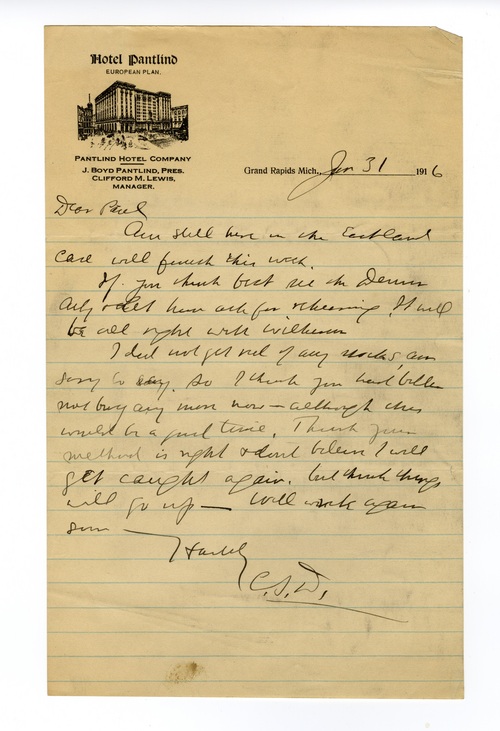 Hotel Pantlind
EUROPEAN PLAN.
PANTLIND HOTEL COMPANY
J. BOYD PANTLIND, PRES.
CLIFFORD M. LEWIS,
MANAGER.
Grand Rapids Mich., Jan 31 1916
Dear Paul
Am still here in the Eastland
case will finish this week.
If you think best see the Denver
atty & let him ask for rehearing. It will
be all right with
I did not get rid of any stocks, am
sorry to say. So I think you had better
not buy any more now — although this
would be a good time. Think your
method is right & don't believe I will
get caught again. but think things
will go up — Will write again
soon —
Hastily
C.S.D.